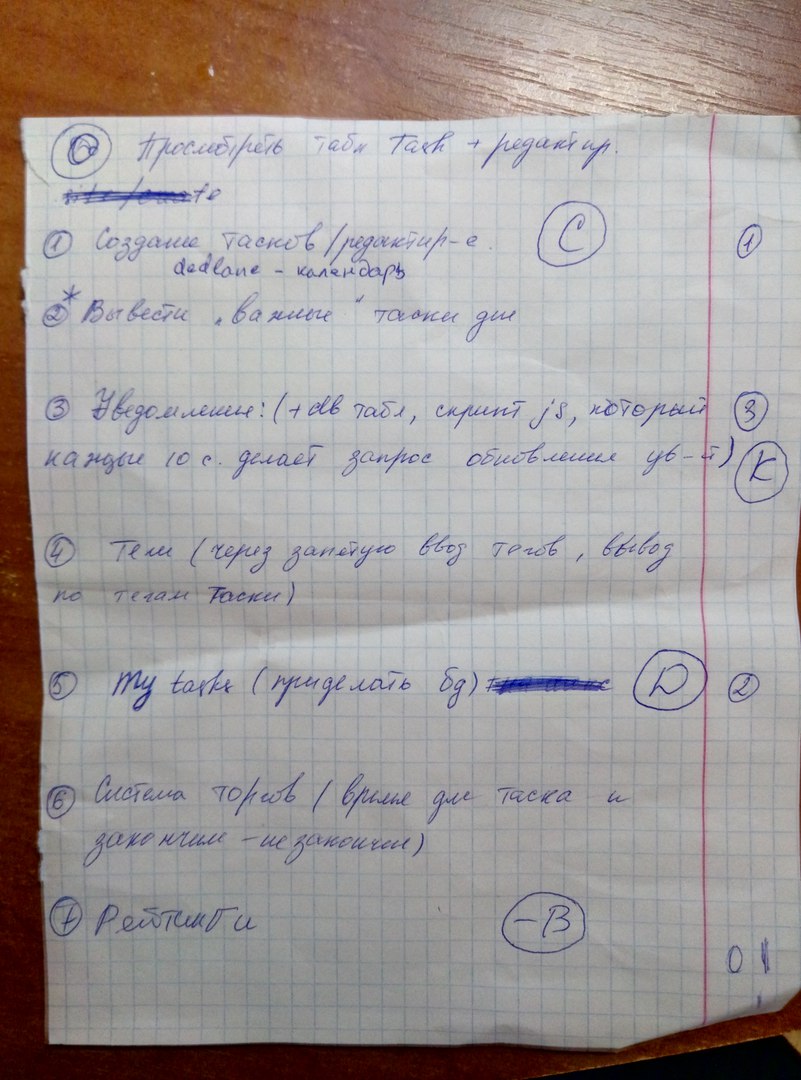 0 Просмотреть табл Task + редактир.
1 Создание тасков / редактир-е. C 1
dedlane - календарь
2* Вывести „важные“ таски дня
3 Уведомление: (+ db табл, скрипт js, который 3
каждые 10 с. делает запрос обновления ув-й) K
4 Теги (через запятую ввод тегов, вывод
по тегам Таски)
5 My tasks (приделать бд) D 2
6 Система торгов (время для таска и
закончил - не закончил)
7 Рейтинги - B
0